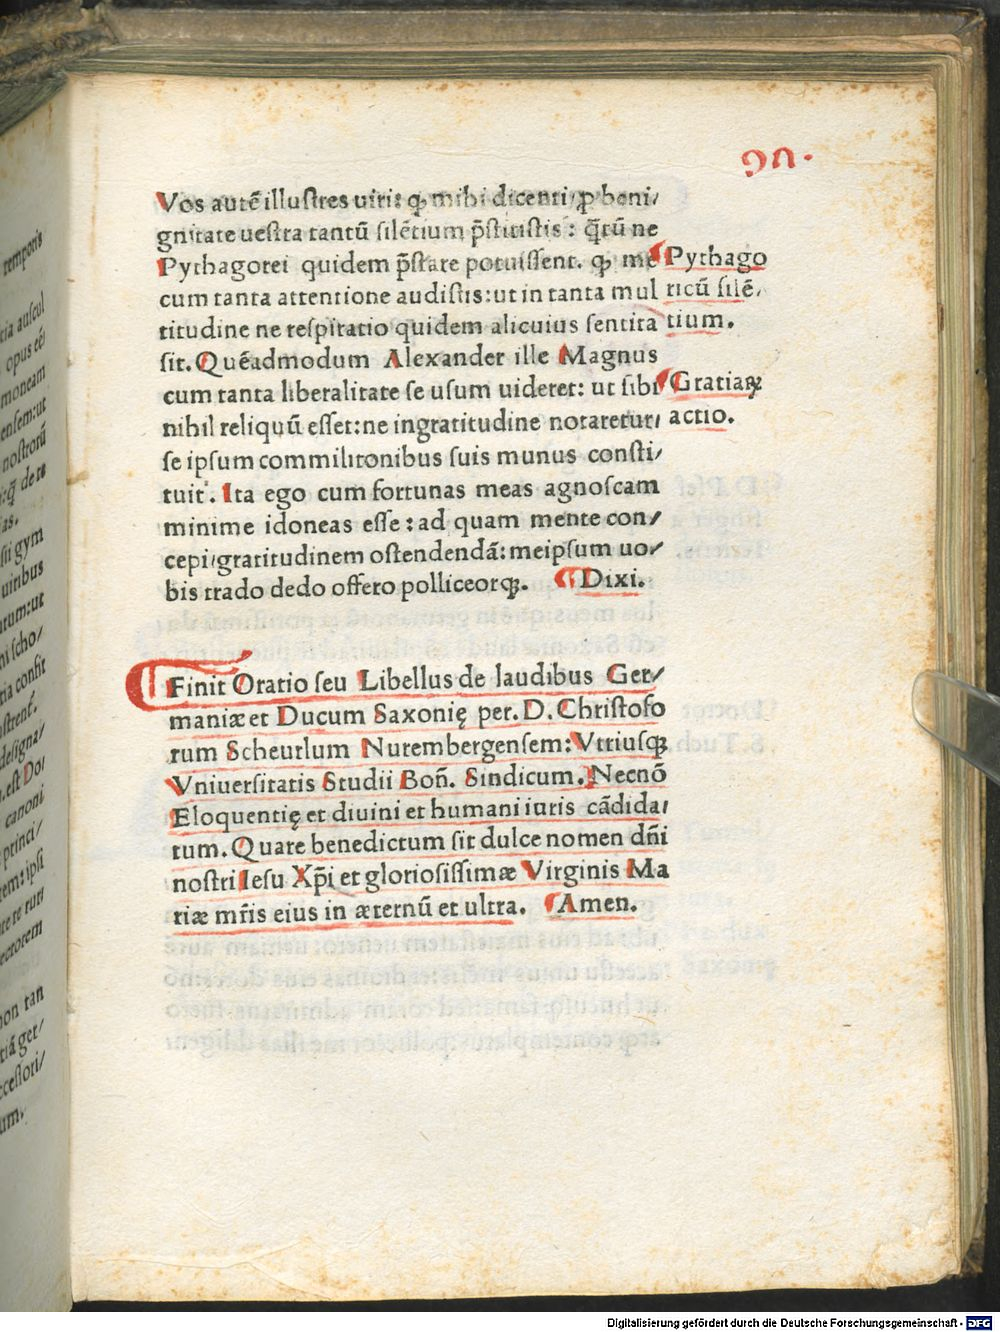 Vos autē illustres uiri: ꝙ mihi dicenti/ꝓ beni/
gnitate uestra tantū silētium p̄stitistis: q̄tū ne
Pythagorei quidem p̄stare potuissent. ꝙ me
cum tanta attentione audistis:ut in tanta mul
titudine ne respiratio quidem alicuius sentita
sit. Quēadmodum Alexander ille Magnus
cum tanta liberalitate se usum uideret: ut sibi
nihil reliquū esset:ne ingratitudine notaretur/
se ipsum commilitonibus suis munus consti/
tuit. Ita ego cum fortunas meas agnoscam
minime idoneas esse: ad quam mente con/
cepi/gratitudinem ostendendā: meipsum uo/
bis trado dedo offero polliceorqꝫ. Dixi.
Pythago
ricū silē/
tium.
Gratiaꝝ
actio.
Finit Oratio seu Libellus de laudibus Ger/
maniæ et Ducum Saxonię per. D. Christofo
rum Scheurlum Nurembergensem: Vtriusqꝫ
Vniuersitatis Studii Boñ. Sindicum. Necnō
Eloquentię et diuini et humani iuris cādida/
tum. Quare benedictum sit dulce nomen dñi
nostri Iesu Xp̄i et gloriosissimæ Virginis Ma
riæ mr̄is eius in æternū et ultra. Amen.
temporis
moneam
nostrorū
sti gym
uiribus
ni scho/
designa/
canoni
princi/
non tan
tiā ger/
ccessori/
Digitalisierung gefördert durch die Deutsche Forschungsgemeinschaft - DFG